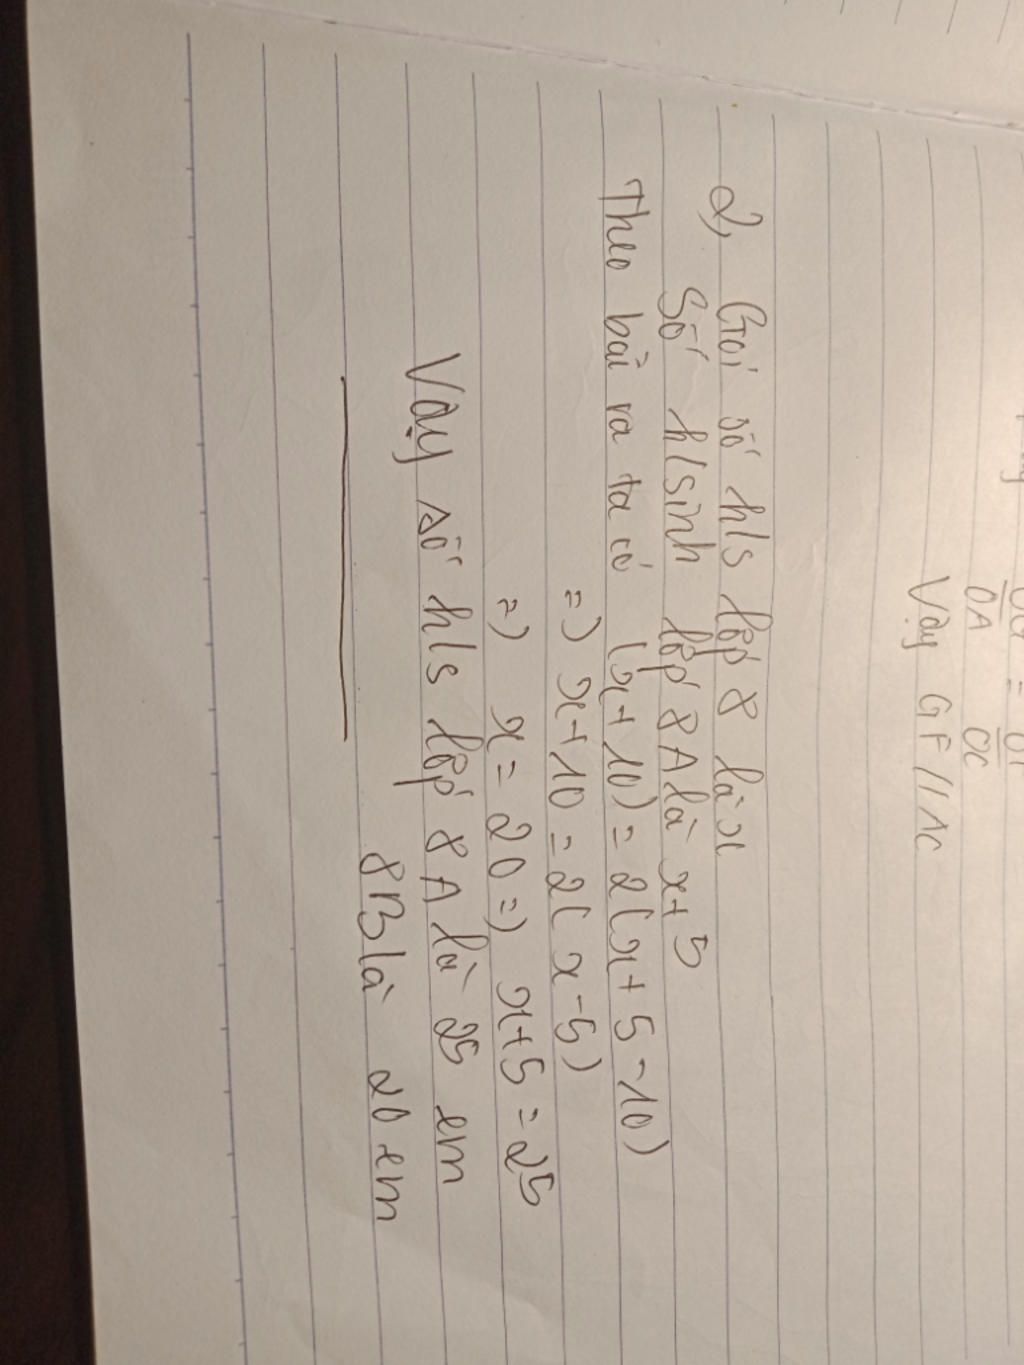 OA OC
Vậy GF // AC
2, Gọi số h/s lớp 8 là x
Số h/sinh lớp 8A là x+5
Theo bài ra ta có (x+10) = 2(x+5-10)
=) x+10 = 2(x-5)
=) x = 20 =) x+5 = 25
Vậy số h/s lớp 8A là 25 em
8B là 20 em